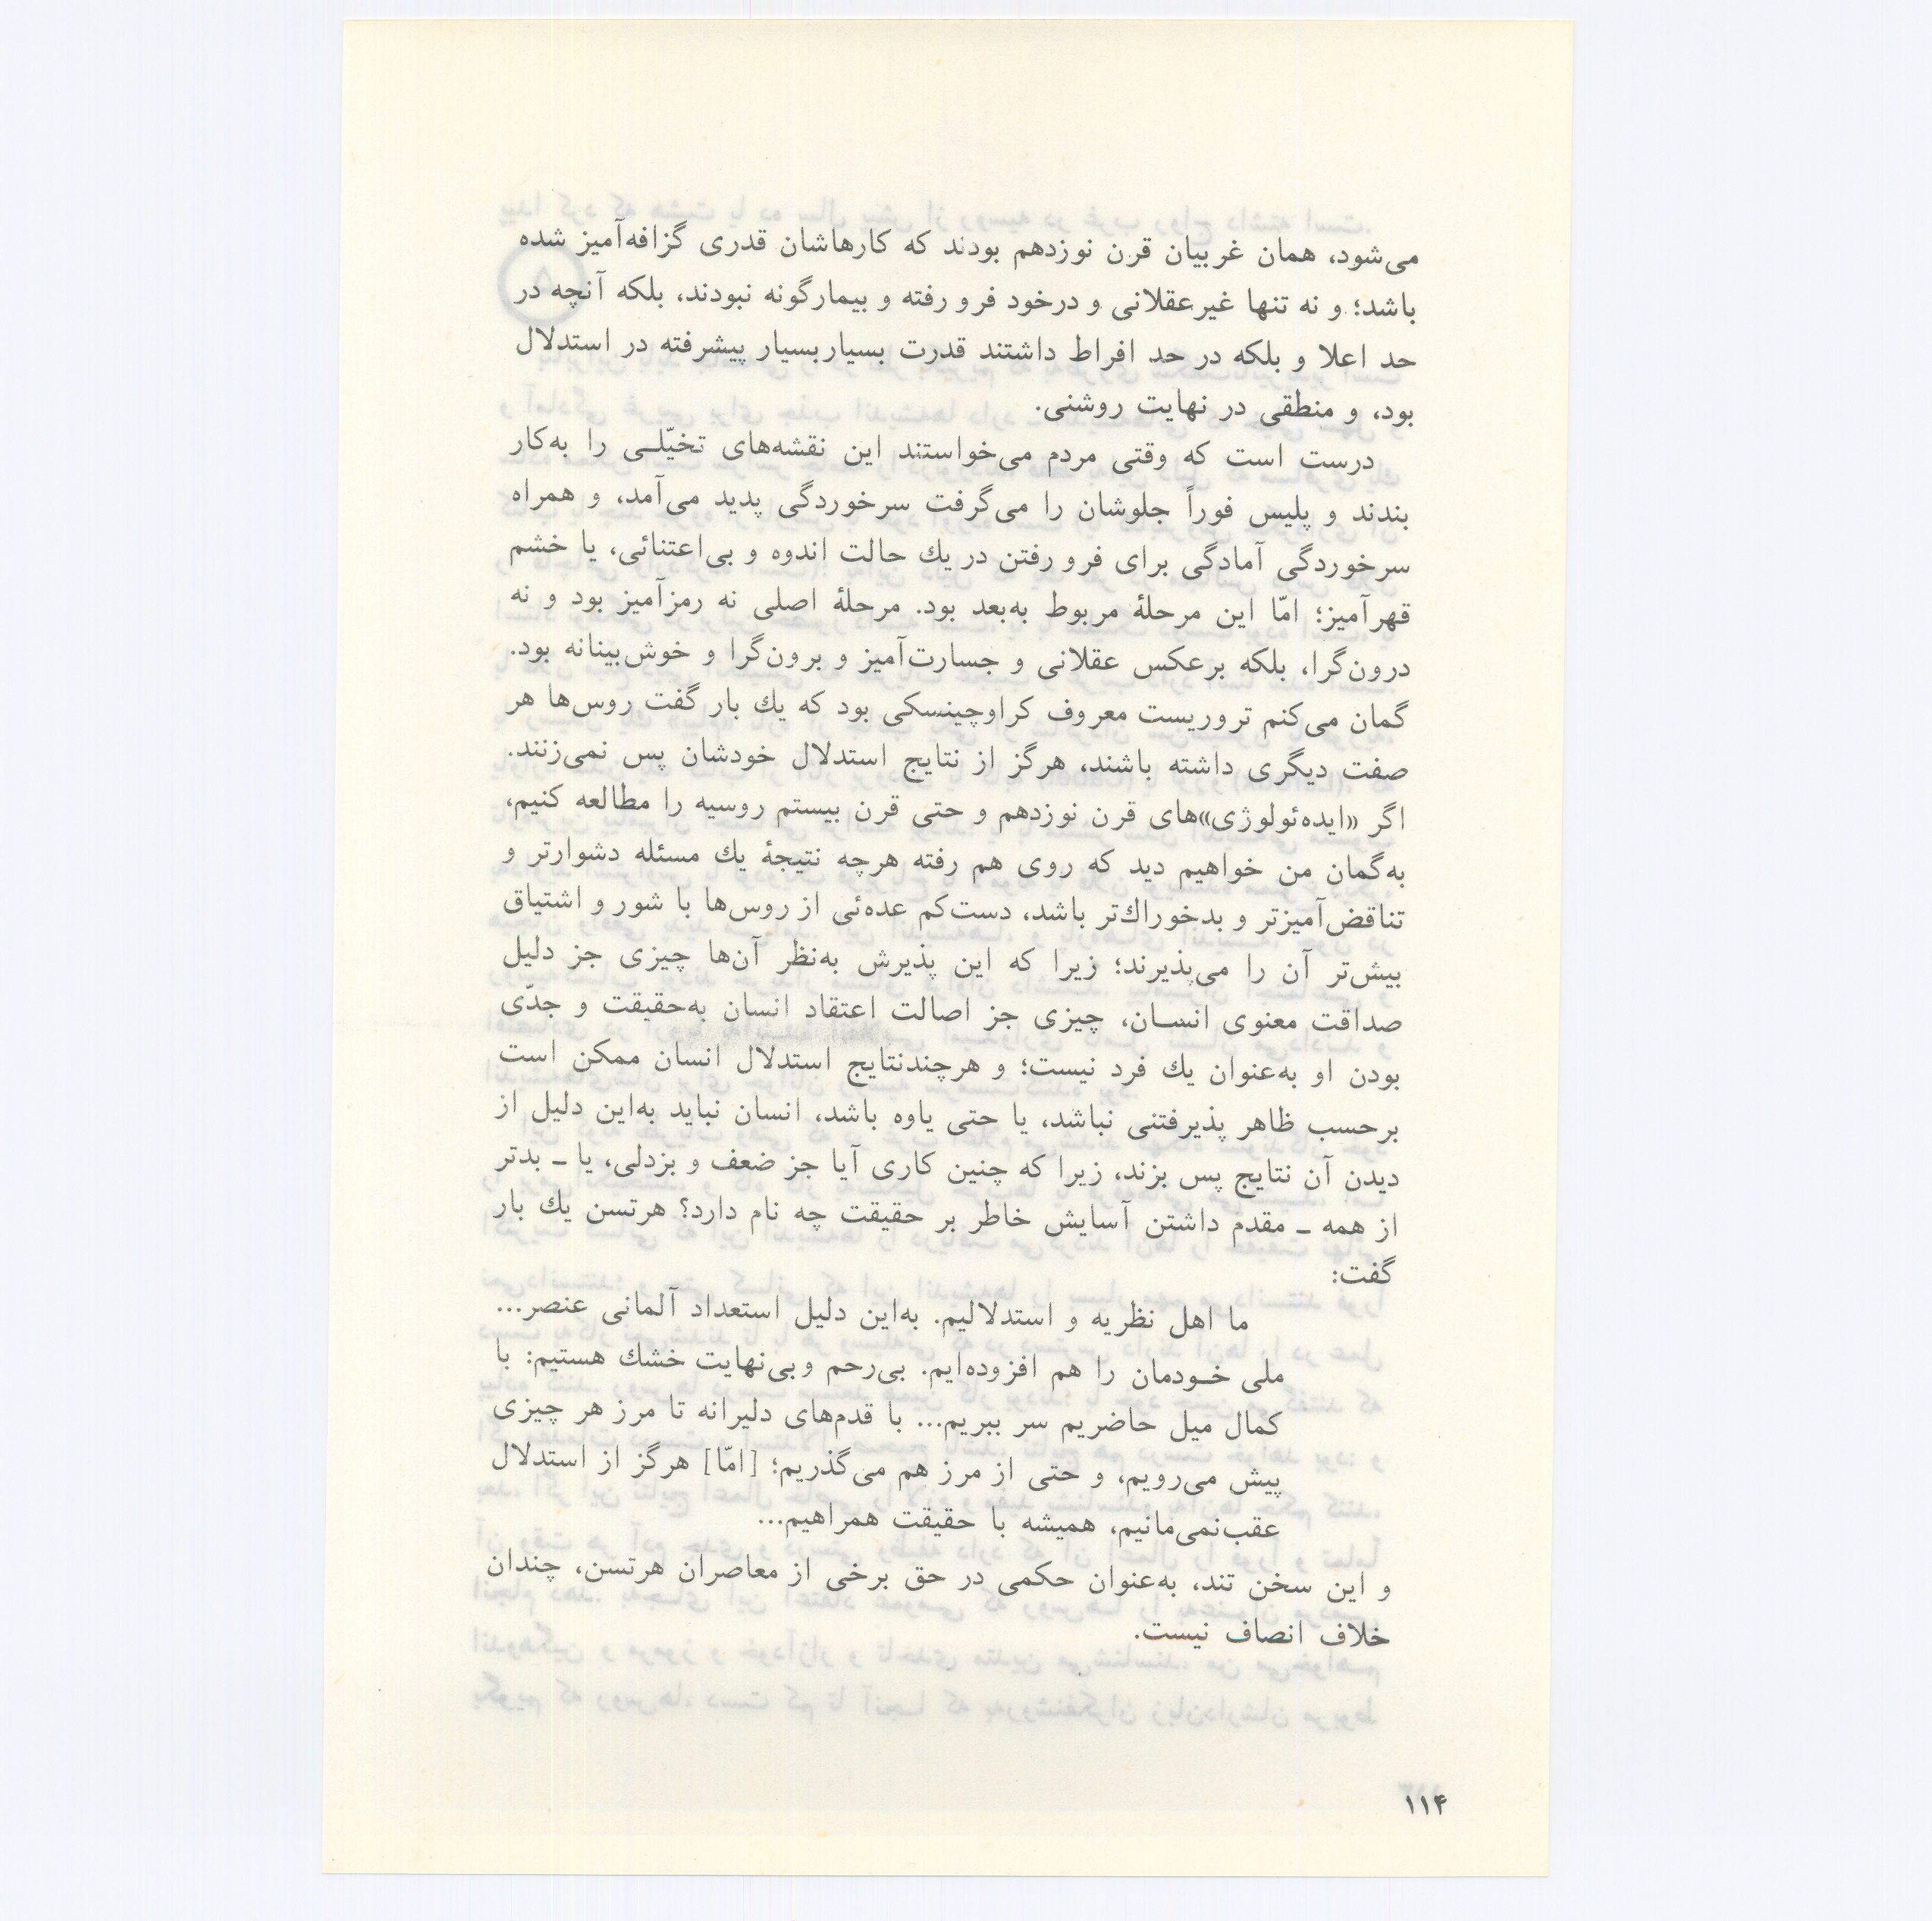 می‌شود، همان غربیان قرن نوزدهم بودند که کارهاشان قدری گزافه‌آمیز شده
باشد؛ و نه تنها غیرعقلانی و درخود فرو رفته و بیمارگونه نبودند، بلکه آنچه در
حد اعلا و بلکه در حد افراط داشتند قدرت بسیاربسیار پیشرفته در استدلال
بود، و منطقی در نهایت روشنی.
درست است که وقتی مردم می‌خواستند این نقشه‌های تخیّلی را به‌کار
بندند و پلیس فوراً جلوشان را می‌گرفت سرخوردگی پدید می‌آمد، و همراه
سرخوردگی آمادگی برای فرو رفتن در یك حالت اندوه و بی‌اعتنائی، یا خشم
قهرآمیز؛ امّا این مرحلهٔ مربوط به‌بعد بود. مرحلهٔ اصلی نه رمزآمیز بود و نه
درون‌گرا، بلکه برعکس عقلانی و جسارت‌آمیز و برون‌گرا و خوش‌بینانه بود.
گمان می‌کنم تروریست معروف کراوچینسکی بود که یك بار گفت روس‌ها هر
صفت دیگری داشته باشند، هرگز از نتایج استدلال خودشان پس نمی‌زنند.
اگر «ایده‌ئولوژی»های قرن نوزدهم و حتی قرن بیستم روسیه را مطالعه کنیم،
به‌گمان من خواهیم دید که روی هم رفته هرچه نتیجهٔ یك مسئله دشوارتر و
تناقض‌آمیزتر و بدخوراك‌تر باشد، دست‌کم عده‌ئی از روس‌ها با شور و اشتیاق
بیش‌تر آن را می‌پذیرند؛ زیرا که این پذیرش به‌نظر آن‌ها چیزی جز دلیل
صداقت معنوی انسان، چیزی جز اصالت اعتقاد انسان به‌حقیقت و جدّی
بودن او به‌عنوان یك فرد نیست؛ و هرچندنتایج استدلال انسان ممکن است
برحسب ظاهر پذیرفتنی نباشد، یا حتی یاوه باشد، انسان نباید به‌این دلیل از
دیدن آن نتایج پس بزند، زیرا که چنین کاری آیا جز ضعف و بزدلی، یا ـ بدتر
از همه ـ مقدم داشتن آسایش خاطر بر حقیقت چه نام دارد؟ هرتسن یك بار
گفت:
ما اهل نظریه و استدلالیم. به‌این دلیل استعداد آلمانی عنصر...
ملی خودمان را هم افزوده‌ایم. بی‌رحم وبی‌نهایت خشك هستیم: با
کمال میل حاضریم سر ببریم... با قدم‌های دلیرانه تا مرز هر چیزی
پیش می‌رویم، و حتی از مرز هم می‌گذریم؛ [امّا] هرگز از استدلال
عقب‌نمی‌مانیم، همیشه با حقیقت همراهیم...
و این سخن تند، به‌عنوان حکمی در حق برخی از معاصران هرتسن، چندان
خلاف انصاف نیست.
۱۱۴